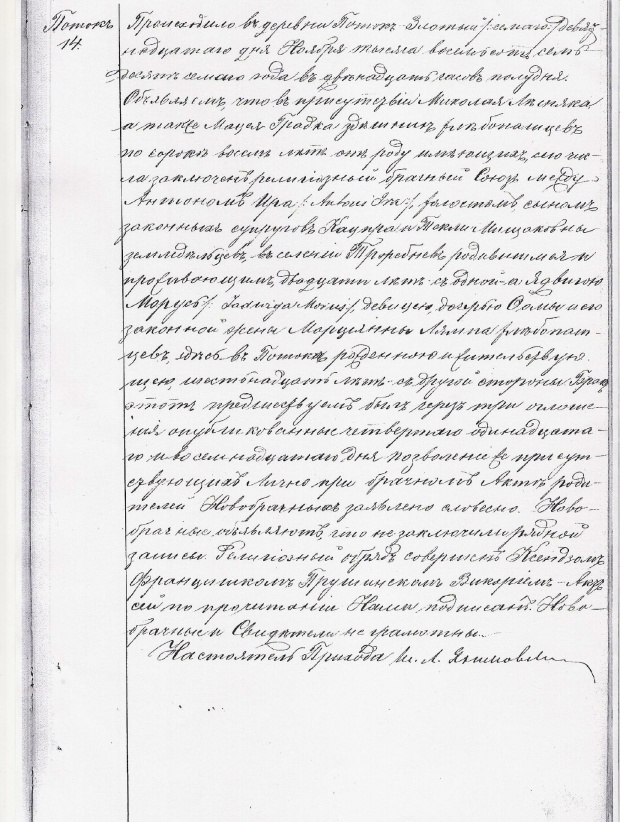 Потокъ
14.
Происходило въ деревни Потокъ-Злотый /: семаго :/ девят-
надцатаго дня Ноября тысяча восемьсотъ семь-
десятъ семаго года въ двѣнадцать часовъ полудня.
Объявляемъ, что въ присутствіи Миколая Лесняка
а также Мацея Градка здешнихъ хлѣбопашцевъ
по сорокъ восемь лѣтъ отъ роду имѣющихъ, сего чис-
ла заключенъ религіозный брачный Союзъ между
Антономъ Ира /: Antoni :/ холостымъ, сыномъ
законныхъ супруговъ Кацпра и Текли
земледѣльцевъ, въ селеніи родившимся и
проживающимъ, двадцати лѣтъ-съ одной-а Ядвигою
Морусъ /: Jadwiga Moruś :/ девицею, дочерью Фомы и его
законной жены Марцянны Лямпа хлѣбопаш-
цевъ, здѣсь въ Потокѣ рожденною и жительствую-
щею, шестнадцать лѣтъ-съ другой стороны. Бракъ
этотъ предшествуемъ былъ черезъ три оглаше-
нія опубликованные четвертаго одинадцата-
го и восемнадцатаго дня позволеніе присут-
ствующихъ лично при брачномъ Актѣ роди-
телей Новобрачныхъ заявлено словесно. Ново-
брачные объявляютъ, что не заключили рядной
записи. Религіозный обрядъ совершенъ Ксендзомъ
Францишкомъ Прушинскомъ Викаріемъ-Акт
сей по прочитаніи Нами подписанъ. Ново-
брачные и Свидѣтели не грамотны.-
Настоятель Прихода